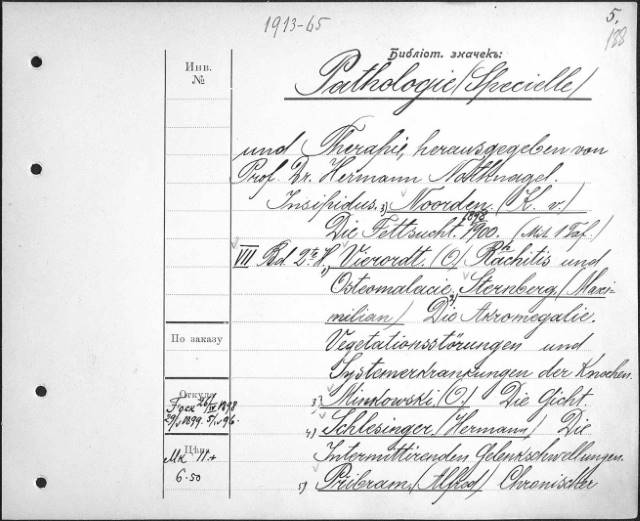 1913-65
5.
188
Библіот. значекъ:
Инв.
№
Pathologie (Specielle)
und Therapie, herausgegeben von
Prof. Dr. Hermann Nothnagel.
Insipidus. 3) Noorden. (K. v.)
1898
Die Fettsucht. 1900. (Mit 1 Taf.)
VII Bd 2te H. 1) Vierordt. (O) Rachitis und
Osteomalacie. 2) Sternberg. (Maxi-
milian) Die Akromegalie.
По заказу
Vegetationsstörungen und
Systemerkrankungen der Knochen.
Откуда
3) Minkowski (O.) Die Gicht.
4) Schlesinger. (Hermann) Die
Цѣна
Intermittirenden Gelenkschwellungen.
Mk 11.+
6.50
5) Pribram. (Alfred) Chronischer